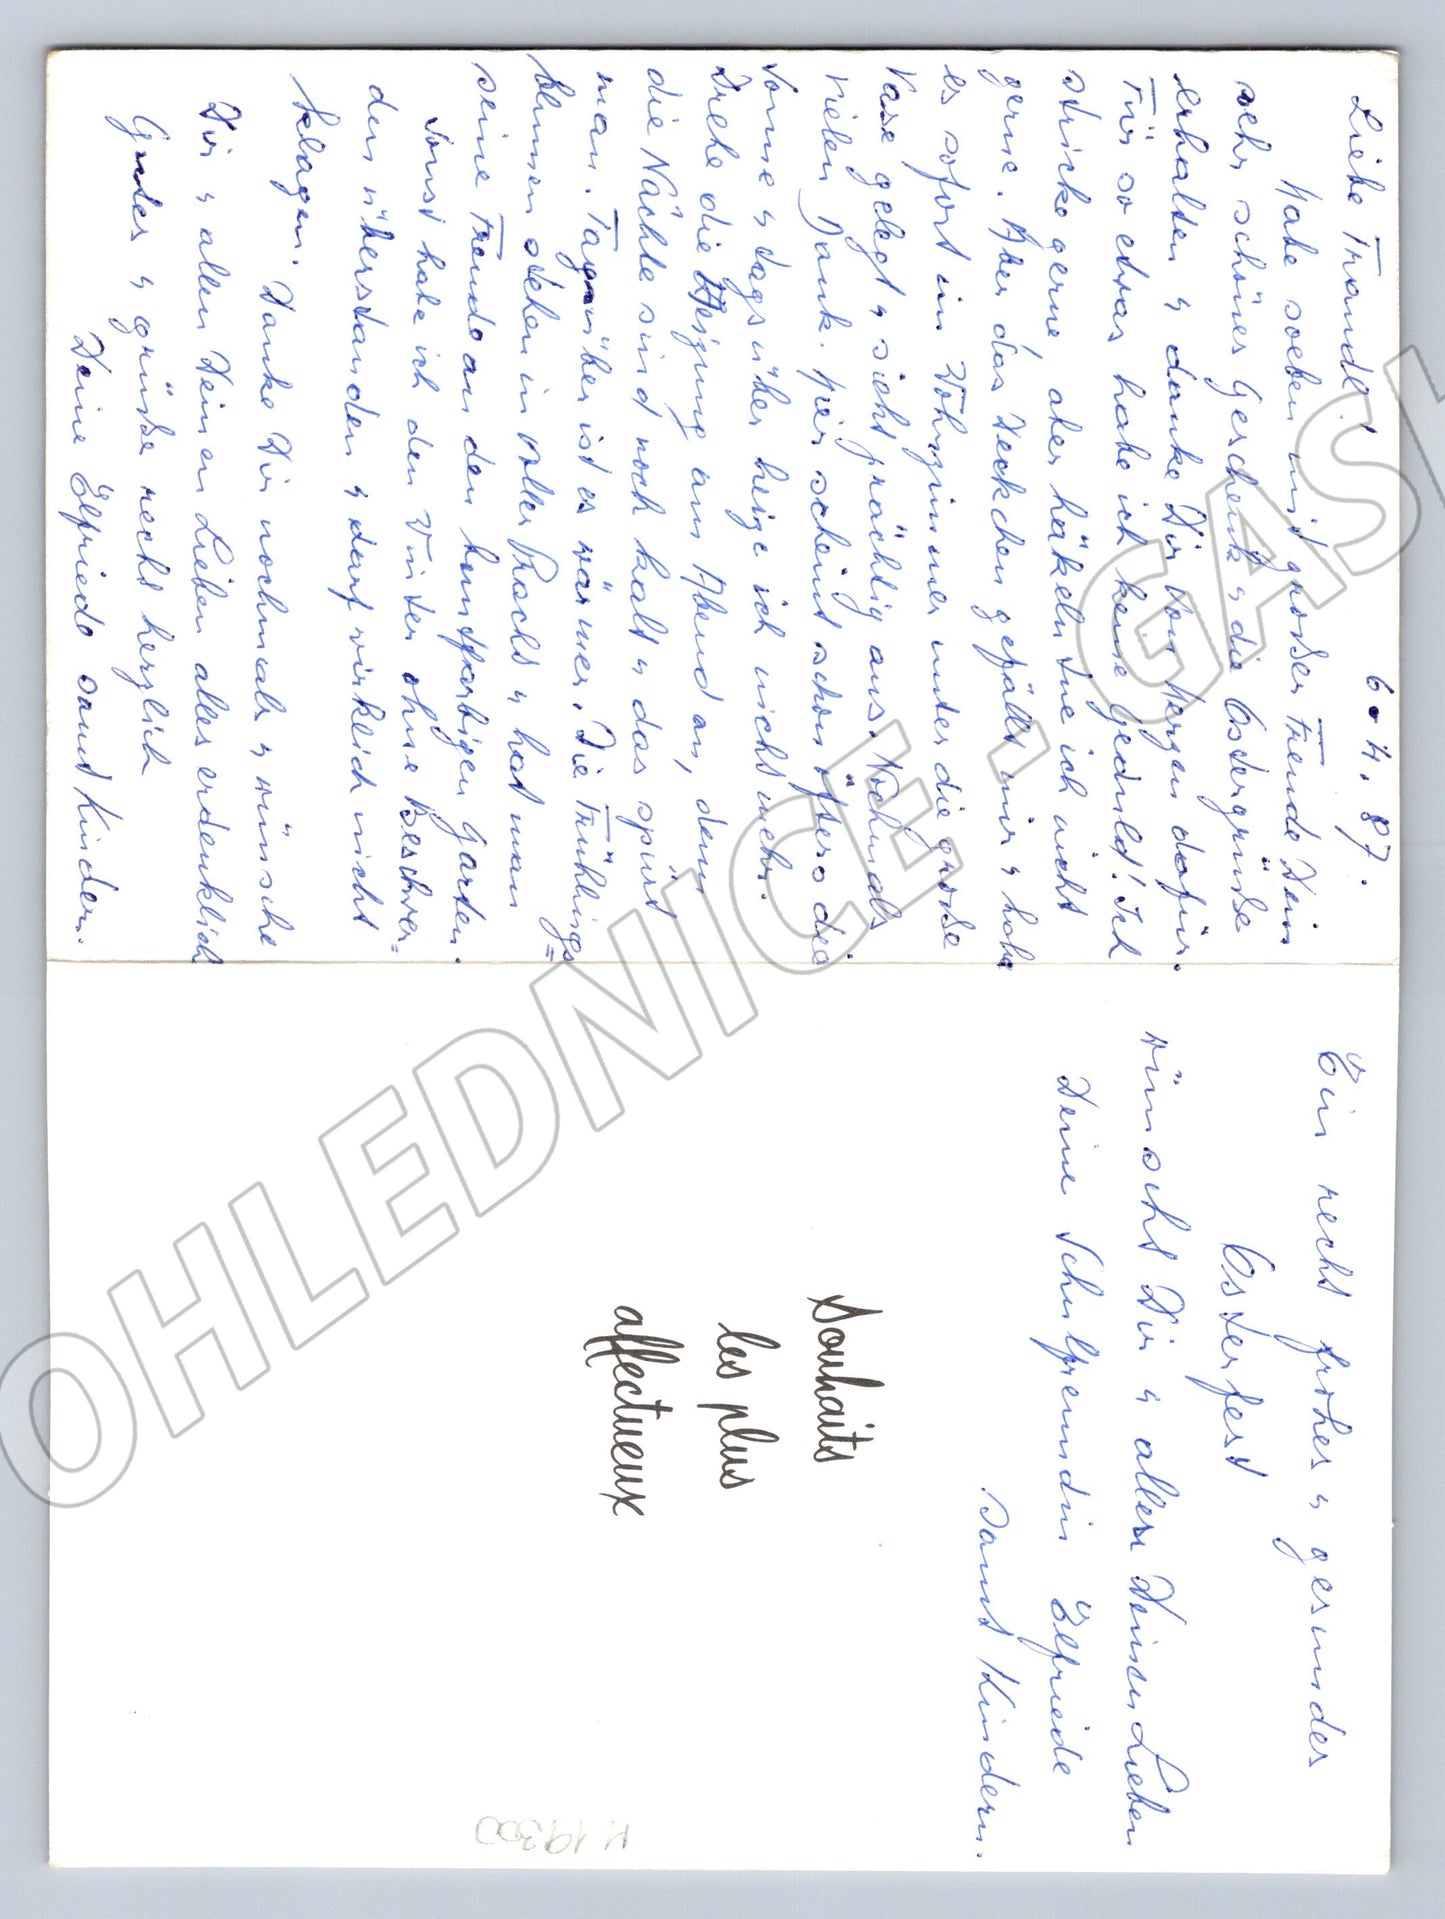 6.4.87.
Liebe Traudl!
Habe soeben mit großer Freude Dein
sehr schönes Geschenk u die Ostergrüße
erhalten u danke Dir von Herzen dafür.
Für so etwas habe ich keine Geduld! Ich
stricke gerne aber häkeln tue ich nicht
gerne. Aber das Deckchen gefällt mir u habe
es sofort im Wohnzimmer unter die große
Vase gelegt u sieht prächtig aus. Nochmals
vielen Dank. Hier scheint schon öfters die
Sonne u tags über heize ich nicht mehr.
Drehe die Heizung am Abend an, denn
die Nächte sind noch kalt u das spürt
man. Tagsüber ist es wärmer. Die Frühlings=
blumen stehen in voller Pracht u hat man
seine Freude an den buntfarbigen Garten.
Sonst habe ich den Winter ohne Beschwer=
den überstanden u darf wirklich nicht
klagen. Danke Dir nochmals u wünsche
Dir u allen Deinen Lieben alles erdenklich
Gutes u grüße recht herzlich
Deine Elfriede samt Kindern.
Ein recht frohes u gesundes
Osterfest
wünscht Dir u allen Deinen Lieben
Deine Schulfreundin Elfriede
samt Kindern.
Souhaits
les plus
affectueux
H 19300
POHLEDNICE - GASH